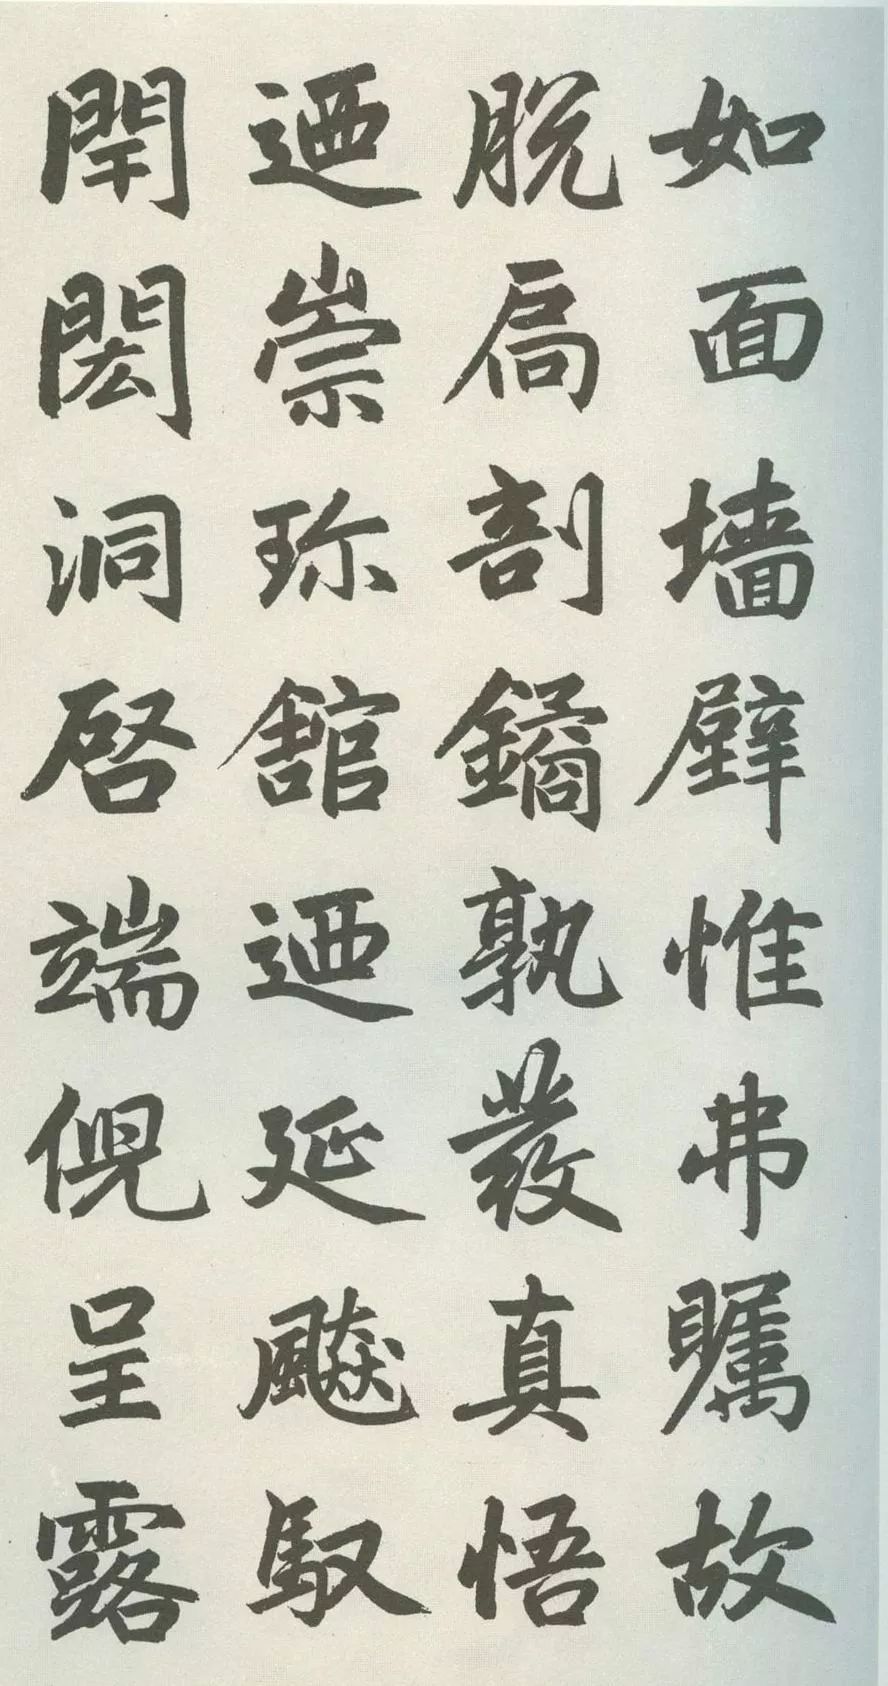 如面墻壁惟弗矚故
脱扃剖鐍孰發真悟
迺崇珎館迺延飇馭
閈閎洞啓端倪呈露